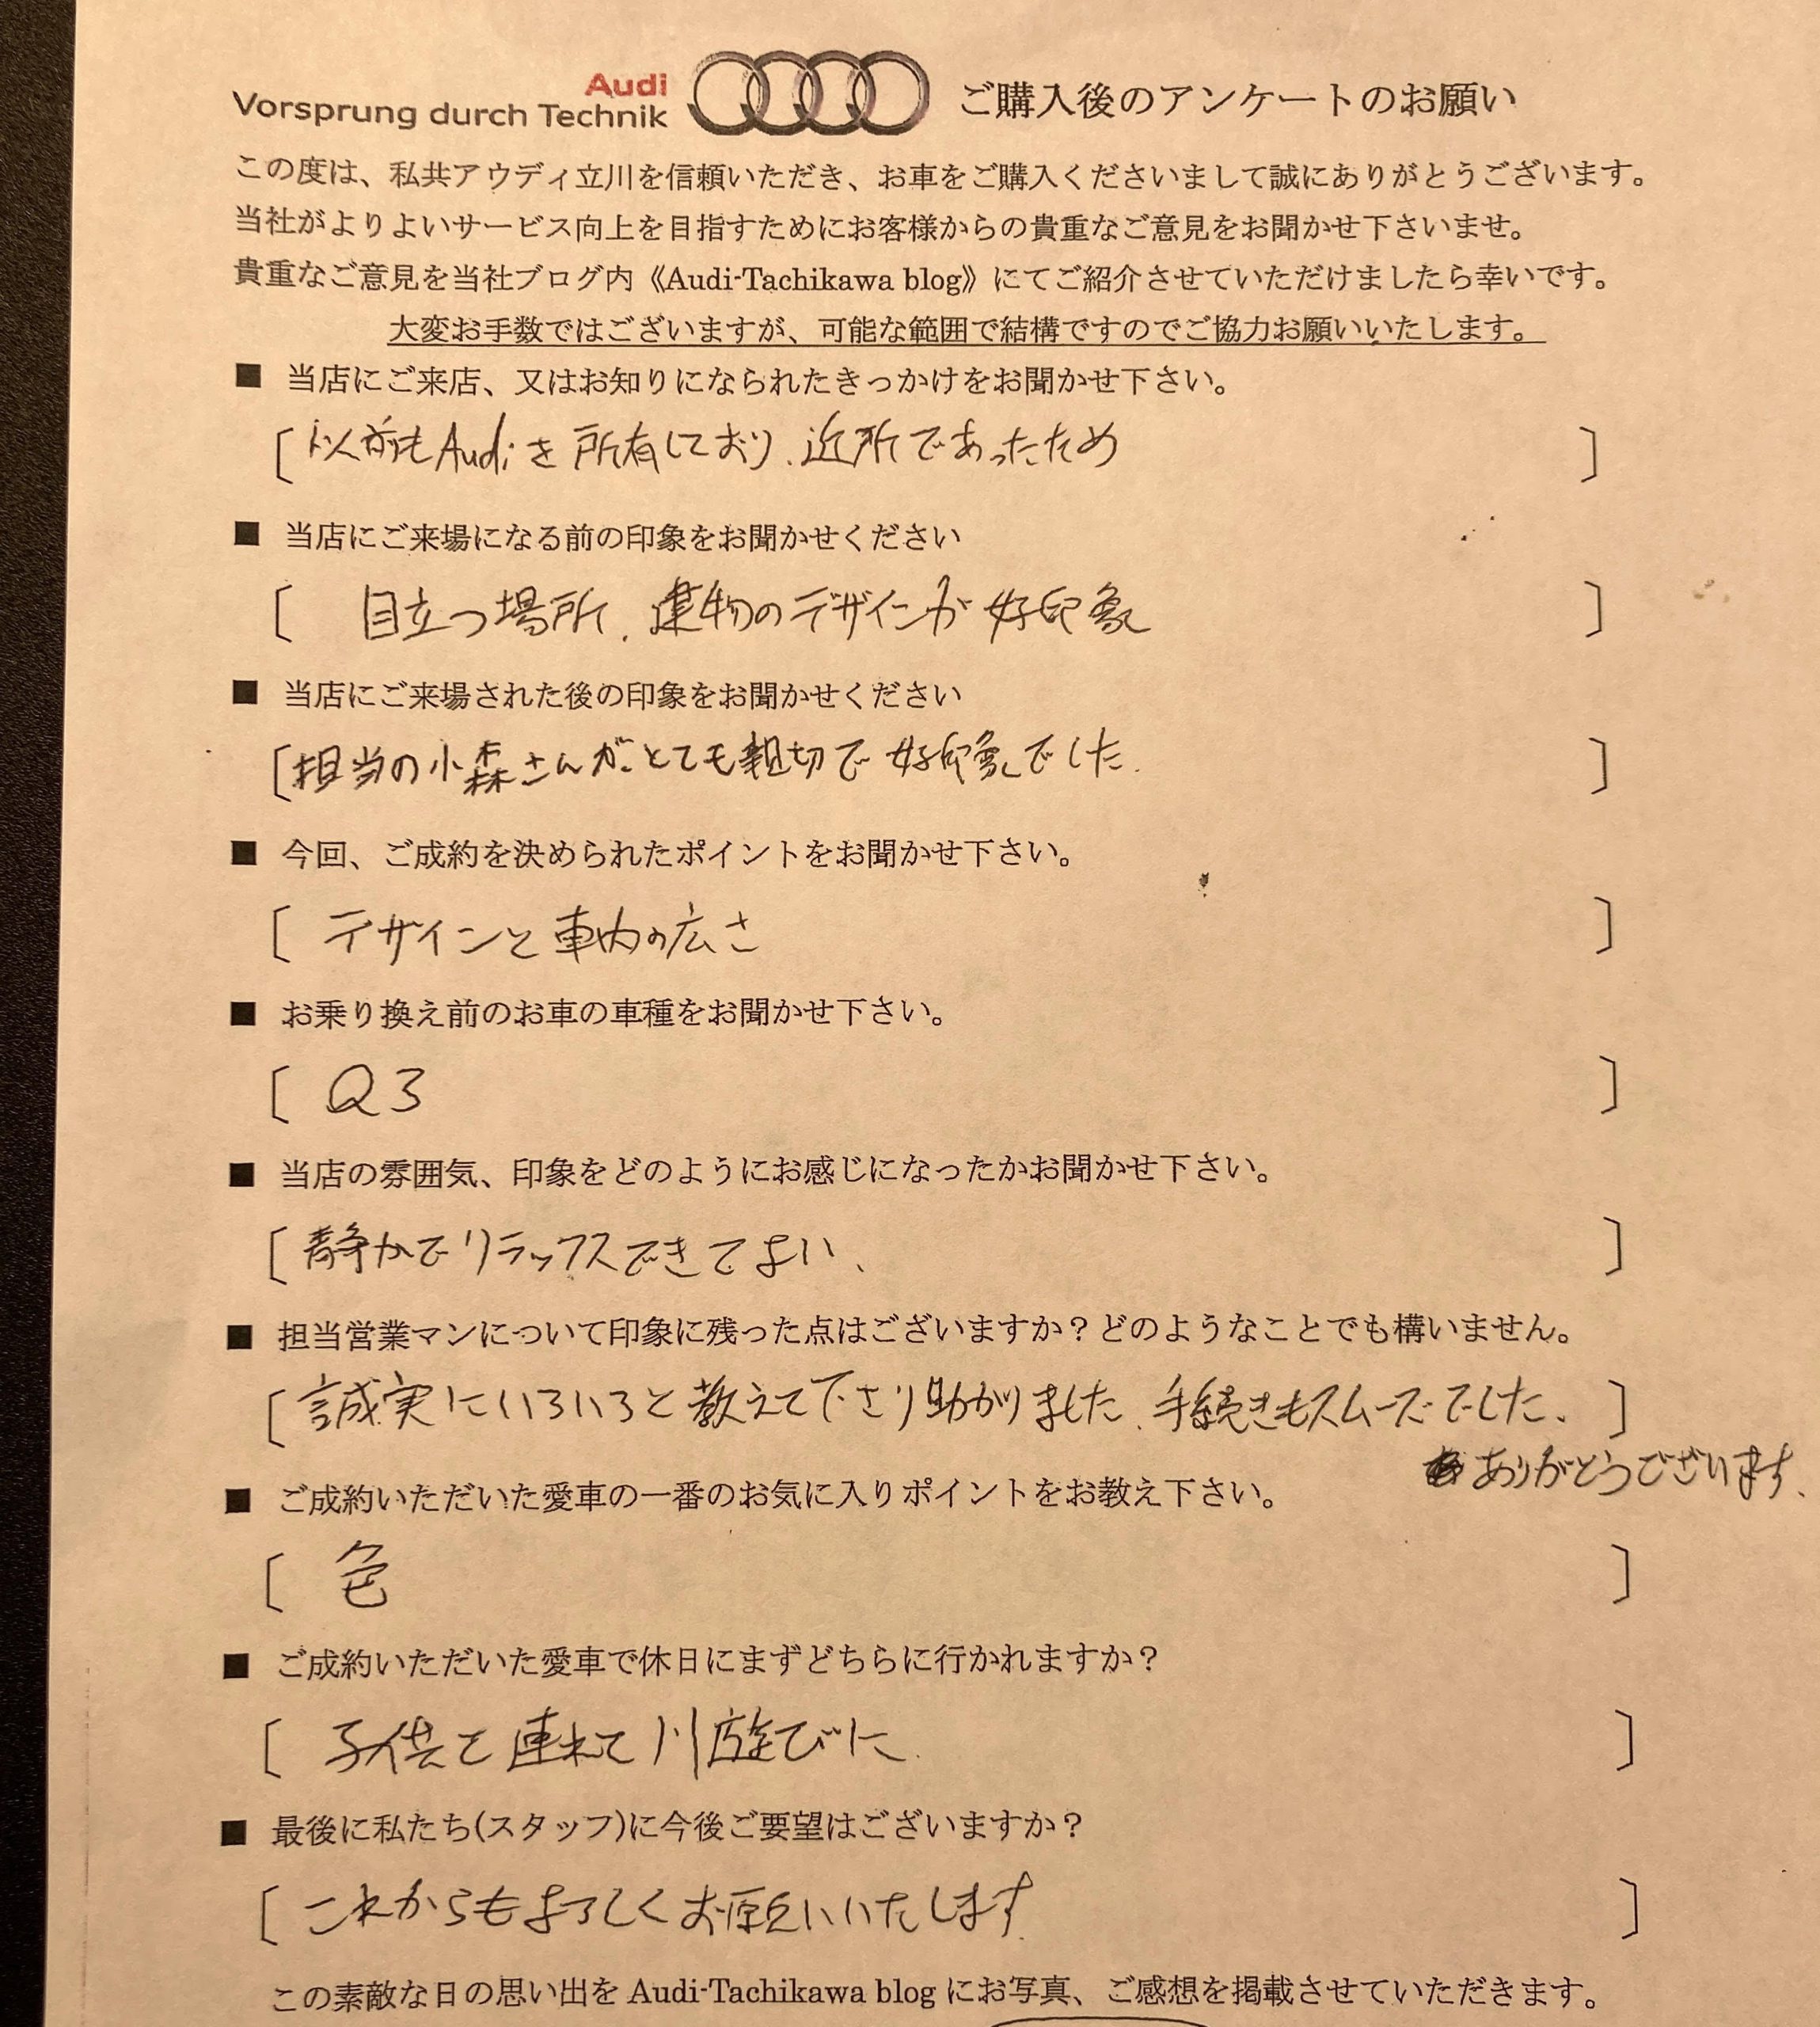 Audi
Vorsprung durch Technik ご購入後のアンケートのお願い
この度は、私共アウディ立川を信頼いただき、お車をご購入くださいまして誠にありがとうございます。
当社がよりよいサービス向上を目指すためにお客様からの貴重なご意見をお聞かせ下さいませ。
貴重なご意見を当社ブログ内《Audi-Tachikawa blog》にてご紹介させていただけましたら幸いです。
大変お手数ではございますが、可能な範囲で結構ですのでご協力お願いいたします。
■ 当店にご来店、又はお知りになられたきっかけをお聞かせ下さい。
〔以前もAudiを所有しており、近所であったため〕
■ 当店にご来場になる前の印象をお聞かせください
〔目立つ場所、建物のデザインが好印象〕
■ 当店にご来場された後の印象をお聞かせください
〔担当の小森さんがとても親切で好印象でした。〕
■ 今回、ご成約を決められたポイントをお聞かせ下さい。
〔デザインと車内の広さ〕
■ お乗り換え前のお車の車種をお聞かせ下さい。
〔Q3〕
■ 当店の雰囲気、印象をどのようにお感じになったかお聞かせ下さい。
〔静かでリラックスできてよい、〕
■ 担当営業マンについて印象に残った点はございますか？どのようなことでも構いません。
〔誠実にいろいろと教えて下さり助かりました、手続きもスムーズでした、〕
ありがとうございます、
■ ご成約いただいた愛車の一番のお気に入りポイントをお教え下さい。
〔色〕
■ ご成約いただいた愛車で休日にまずどちらに行かれますか？
〔子供を連れて川遊びに〕
■ 最後に私たち(スタッフ)に今後ご要望はございますか？
〔これからもよろしくお願いいたします〕
この素敵な日の思い出を Audi-Tachikawa blog にお写真、ご感想を掲載させていただきます。